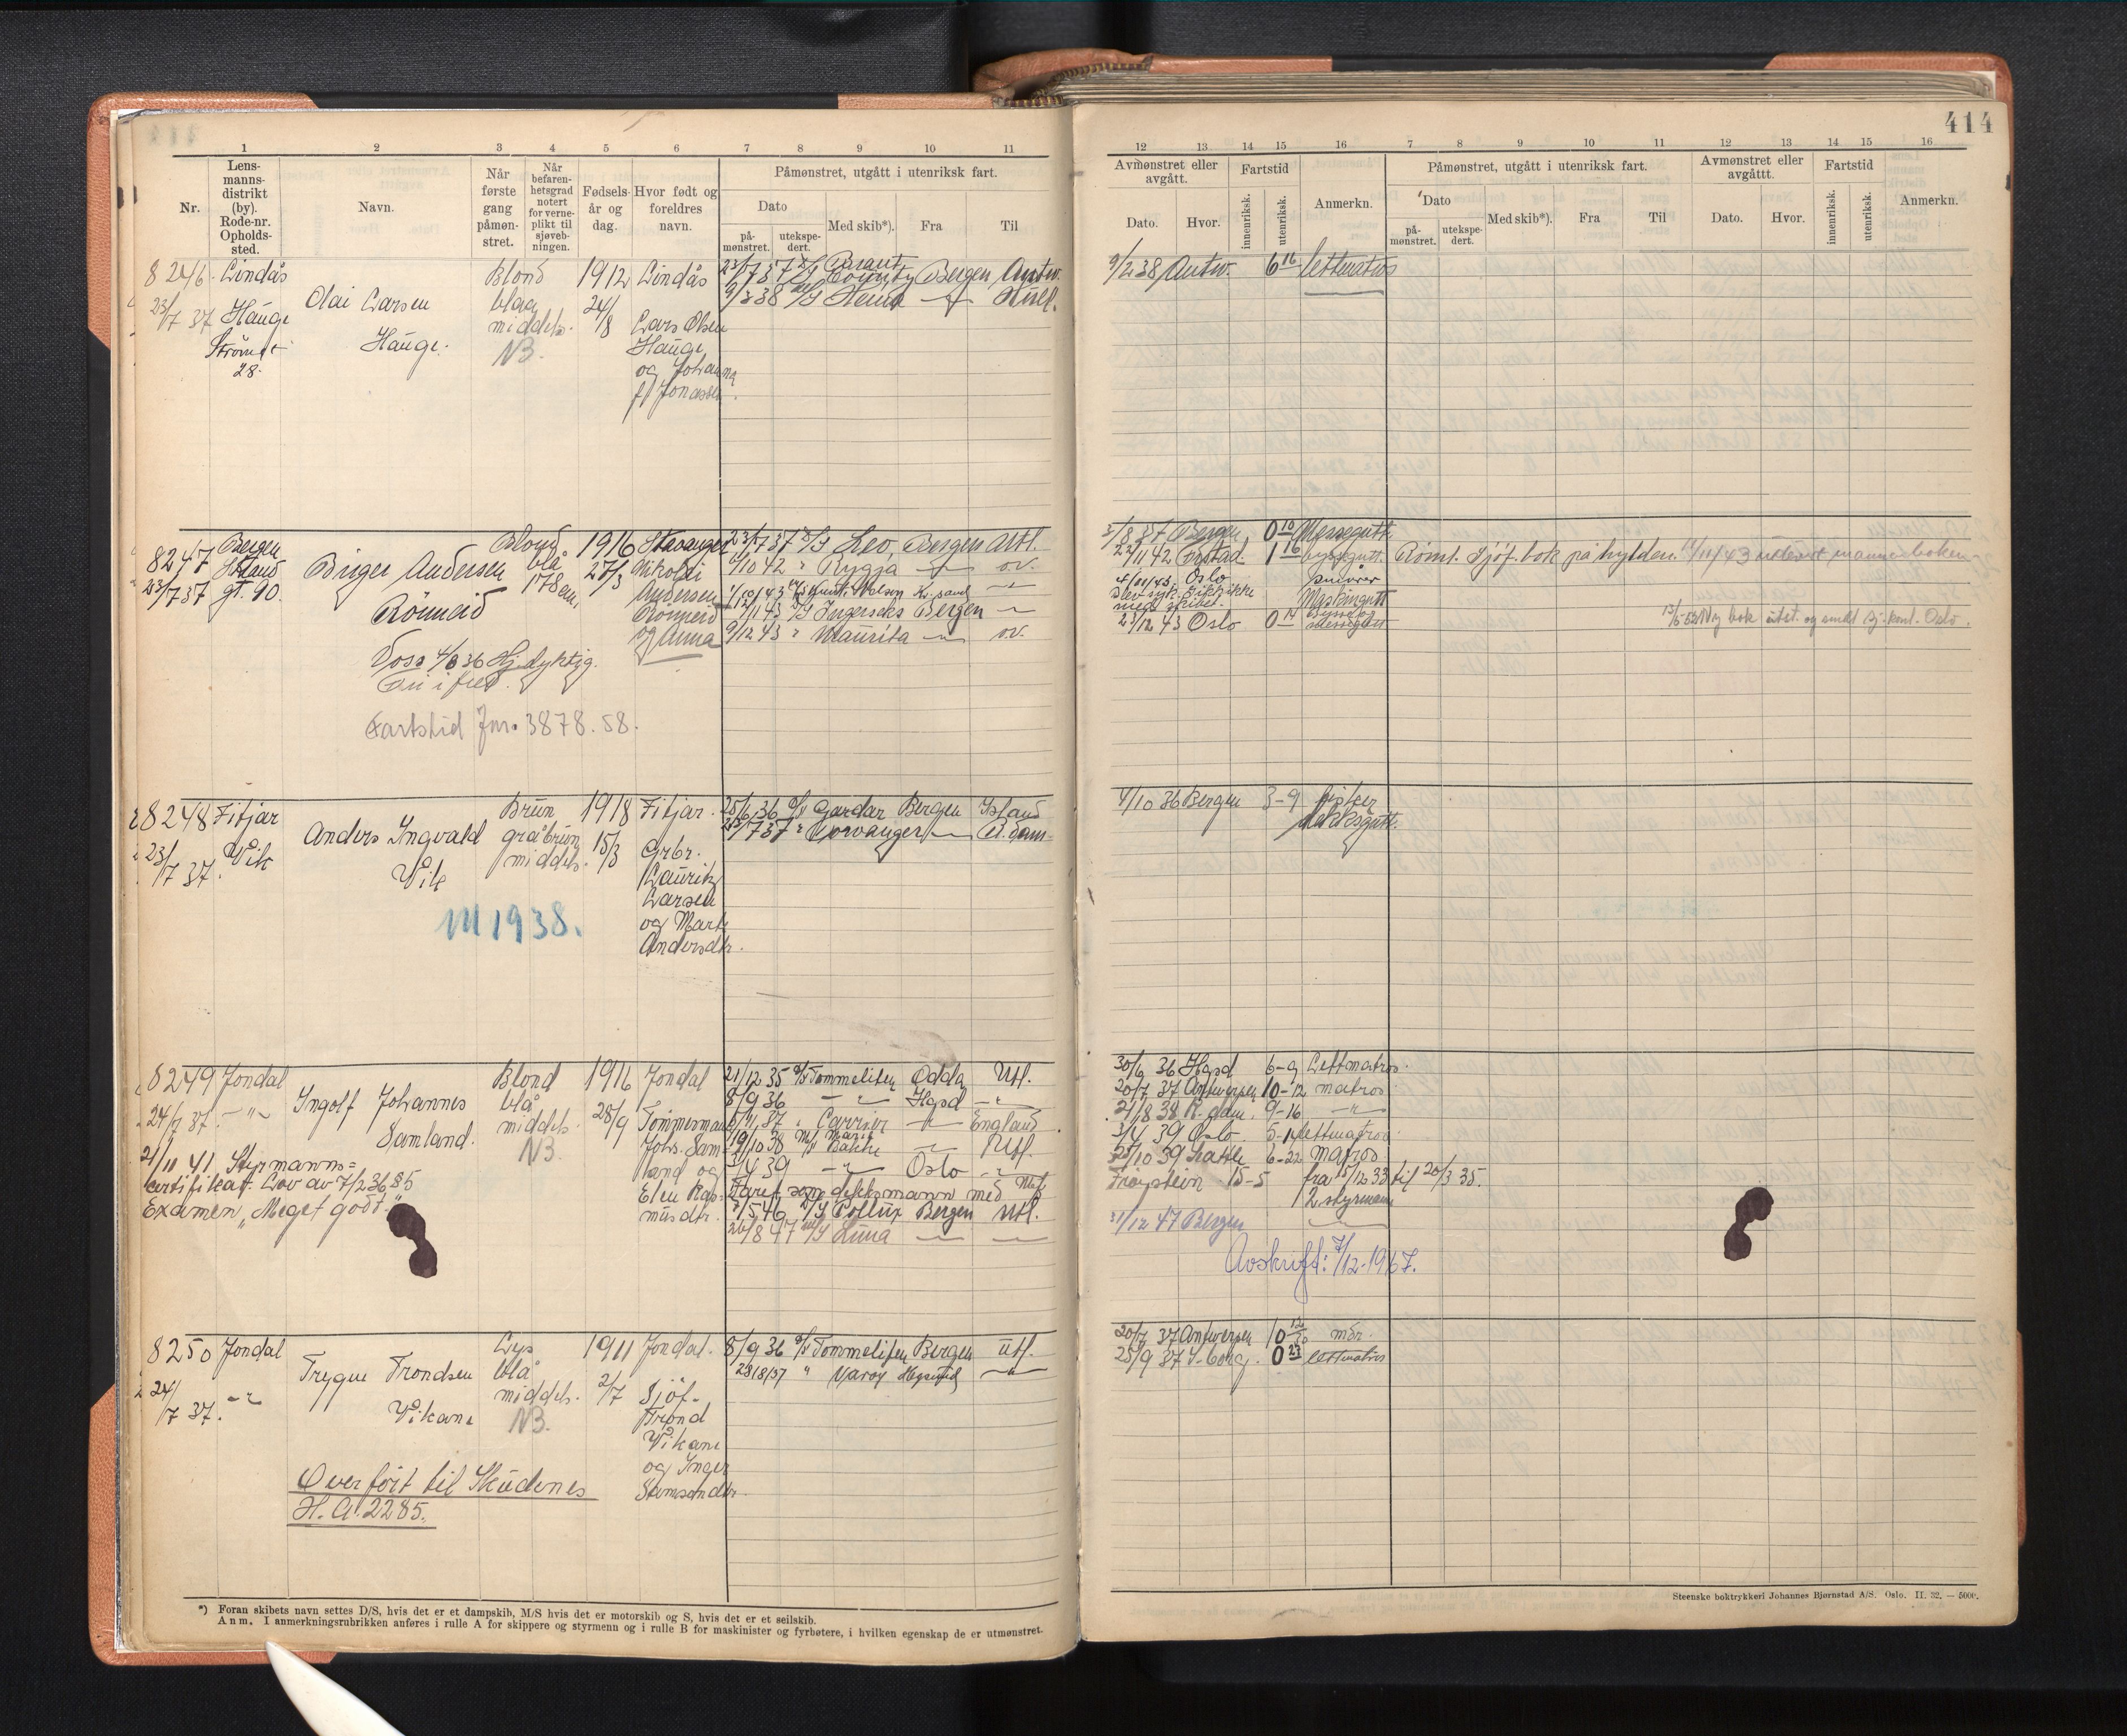 414
1 2 3 4 5 6 7 8 9 10 11
Nr.
Lens-
manns-
distrikt
(by).
Rode-nr.
Opholds-
sted.
Navn.
Når
første
gang
påmøn-
stret.
Når
befaren-
hetsgrad
notert
for verne-
plikt til
sjøveb-
ningen.
Fødsels-
år og
dag.
Hvor født og
foreldres
navn.
Påmønstret, utgått i utenriksk fart.
Dato
på-
mønstret.
utekspe-
dert.
Med skib*).
Fra
Til
12 13 14 15 16 7 8 9 10 11 12 13 14 15 16
Avmønstret eller
avgått.
Dato.
Hvor.
Fartstid
innenriksk.
utenriksk.
Anmerkn.
Påmønstret, utgått i utenriksk fart.
Dato
på-
mønstret.
utekspe-
dert.
Med skib*).
Fra
Til
Avmønstret eller
avgåttt.
Dato.
Hvor.
Fartstid
innenriksk.
utenriksk.
Anmerkn.
8246 Lindås
23/7 37 Hauge
28.
Olai Larsen
Hauge.
Blond
blaa
middels.
NB.
1912
24/8
Lindås
Lars Olsen
Hauge
og Johanna
f. Jonassen.
23/7 37 D/S Brant County Bergen Antw.
9/2 38 Antw. 6 16 lettmatros
8247 Bergen
23/7 37 gt. 90.
Birger Andersen
Rönneid
Blond
blå
178 cm.
1916
27/3
Stavanger
Nikolai
Andersen
Rönneid
og Anna
Voss 4/6 36 Hj. dyktig.
Fri i fred.
Fartstid Jnr. 3878.58.
23/7 37 D/S Leo, Bergen Utl.
/10 42 " Rygja
12/11 43 D/S Ingerseks Bergen
9/12 43 " Maurita
/8 37 Bergen 0 10 Messegutt
/11 42 1 16
4/11 43 Oslo
med skibet.
Maskingutt
23/12 43 Oslo 0 14
Römt. Sjöf. bok på hylden.
13/5-52 Ny bok utst. og sendt Sj. kont. Oslo.
8248 Fitjar
23/7 37. Vik
Anders Ingvald
Vik
M 1938.
Brun
gråbrun
middels.
1918
15/3
Fitjar.
Grbr.
Laurits
Larsen
og Marta
Andersdtr.
25/6 36 Gardar Bergen Island
23/7 37 " Corvanger
4/10 36 Bergen 3-9 fisker
dekksgutt.
8249 Jondal
24/7 37. -"-
Ingolf Johannes
Samland.
Blond
blå
middels.
NB.
1916
28/9
Jondal
Tömmermann
Johs. Sam-
land og
Elen Ras-
musdtr.
21/11 41 Styrmanns=
certifikat Lov av 7/2 36 § 5
Examen „Meget godt."
21/12 35 D/S Tommeliten Odda Utl.
8/9 36 -"- Hgsd -"-
/11 37 " Carrier England
19/10 38 M/S Marie Bakke Utl.
/4 39 -"- Oslo -"-
Faret som dekksmann med
/5 46 D/S Pollux Bergen Utl.
26/8 47 M/S Luna
30/6 36 Hgsd 6-9 Lettmatros.
20/7 37 Antwerpen 10-12 matros
21/8 38 R.dam. 9-16 -"-
3/4 39 Oslo 5-14 lettmatros
/10 39 Seattle 6-22 matros
Fröystein 15-5 fra 15/12 33 til 20/3 35.
2. styrmann
31/12 47 Bergen
Avskrift: 7/12-1967.
8250 Jondal
24/7 37. -"-
Trygve Trondsen
Vikane
Lys
blå
middels.
NB.
1911
2/7
Jondal.
Sjöf-
Trond
Vikane
og Inger
Samsondtr.
Overfört til Skudenes
H. A. 2285.
8/9 36 D/S Tommeliten Bergen utl.
28/8/37 " Varöy Hgsund
20/7 37 Antwerpen 10 12 mdr.
25/9 37 0 27 lettmatros
*) Foran skibets navn settes D/S, hvis det er et dampskib, M/S hvis det er motorskib og S, hvis det er et seilskib.
Anm. I anmerkningsrubrikken anføres i rulle A for skippere og styrmenn og i rulle B for maskinister og fyrbøtere, i hvilken egenskap de er utmønstret.
Steenske boktrykkeri Johannes Bjørnstad A/S. Oslo. II. 32. — 5000.